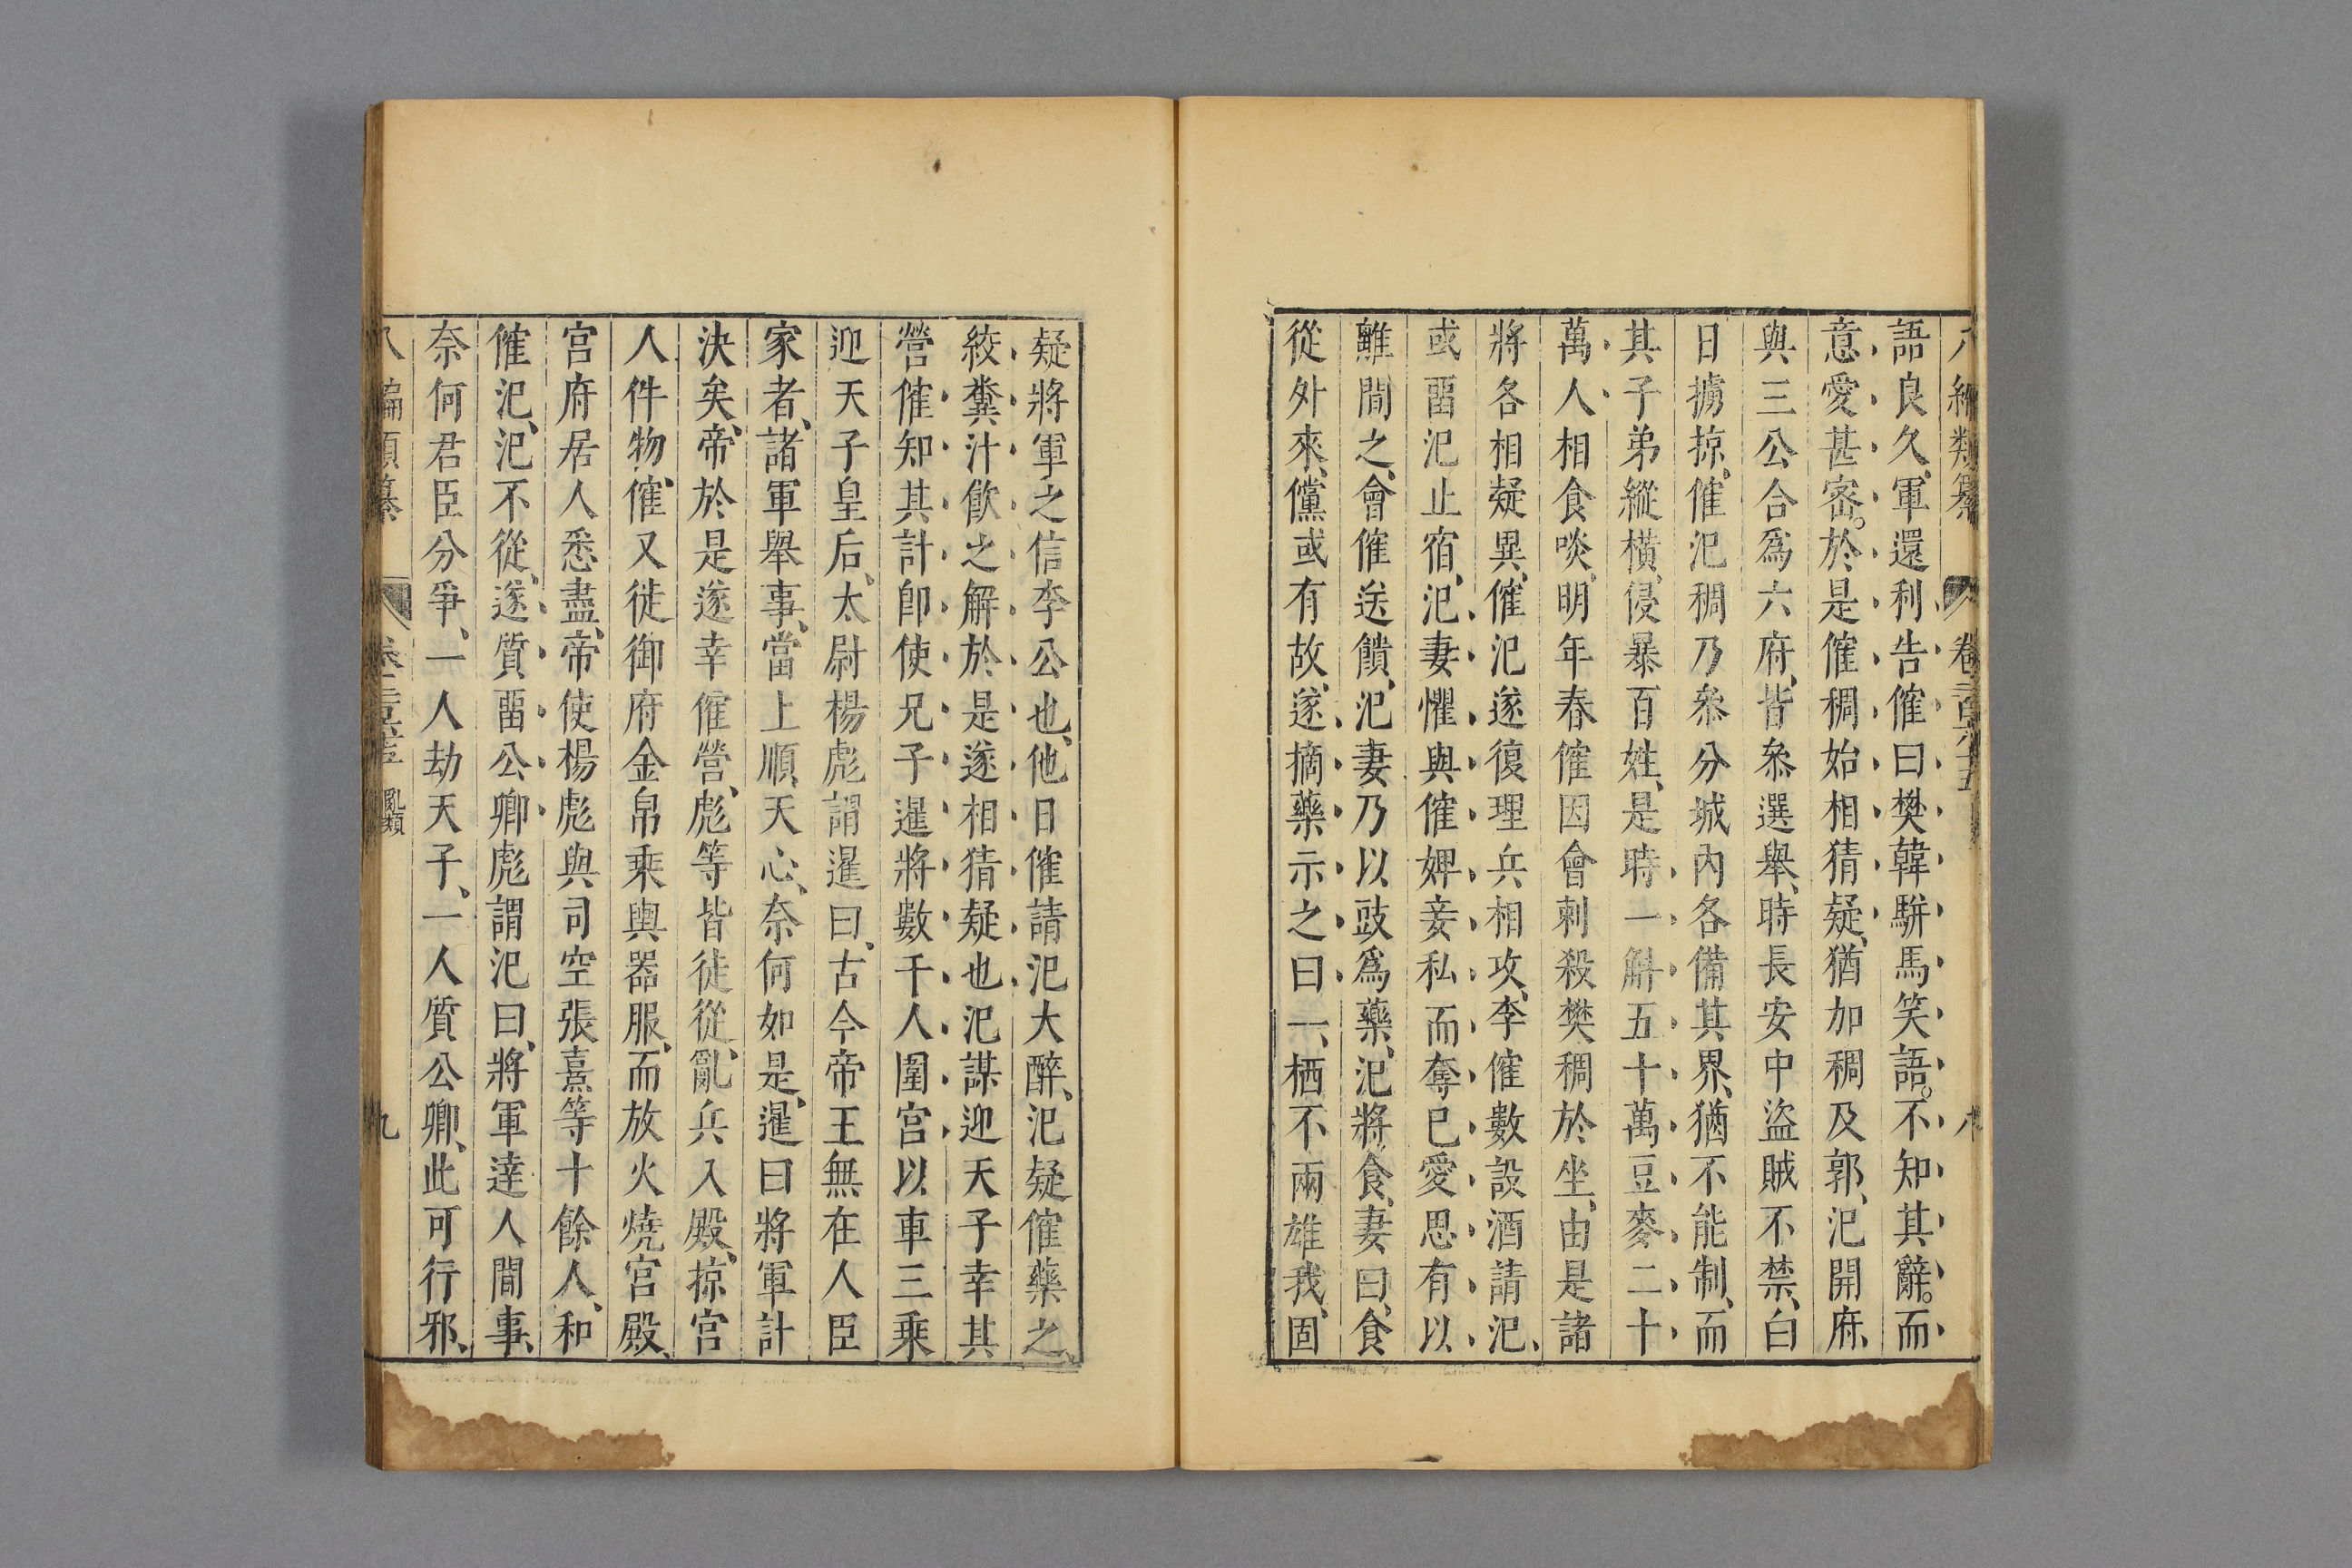 八編類纂 卷二百六十五 八
語良久、軍還利告傕曰樊韓駢馬笑語。不知其辭。而
意愛甚密。於是傕稠始相猜疑、猶加稠及郭、汜開府、
與三公合爲六府、皆叅選舉、時長安中盜賊不禁、白
日擄掠、傕汜稠乃叅分城內各備其界、猶不能制、而
其子弟縱橫、侵暴百姓、是時一斛五十萬豆麥二十
萬人相食啖、明年春傕因會刺殺樊稠於坐、由是諸
將各相疑異、傕汜遂復理兵相攻、李傕數設酒請汜、
或畱汜止宿、汜妻懼與傕婢妾私而奪巳愛思有以
離間之、會傕送饋、汜妻乃以豉爲藥、汜將食、妻曰、食
從外來、儻或有故、遂摘藥示之曰一、栖不兩雄我、固
疑將軍之信李公也、他日傕請汜大醉、汜疑傕藥之、
絞糞汁飲之解於是遂相猜疑也汜謀迎天子幸其
營傕知其計卽使兄子暹將數千人圍宮以車三乘
迎天子皇后、太尉楊彪謂暹曰、古今帝王無在人臣
家者、諸軍舉事、當上順天心、奈何如是、暹曰將軍計
決矣、帝於是遂幸傕營、彪等皆徒從、亂兵入殿、掠宮
人件物、傕又徙御府金帛乘輿器服、而放火燒宮殿、
官府居人悉盡、帝使楊彪與司空張喜等十餘人、和
傕汜、汜不從、遂質畱公卿彪謂汜曰、將軍達人間事、
奈何君臣分爭、一人劫天子、一人質公卿、此可行邪、
八編類纂 卷二百六十五 亂類 九